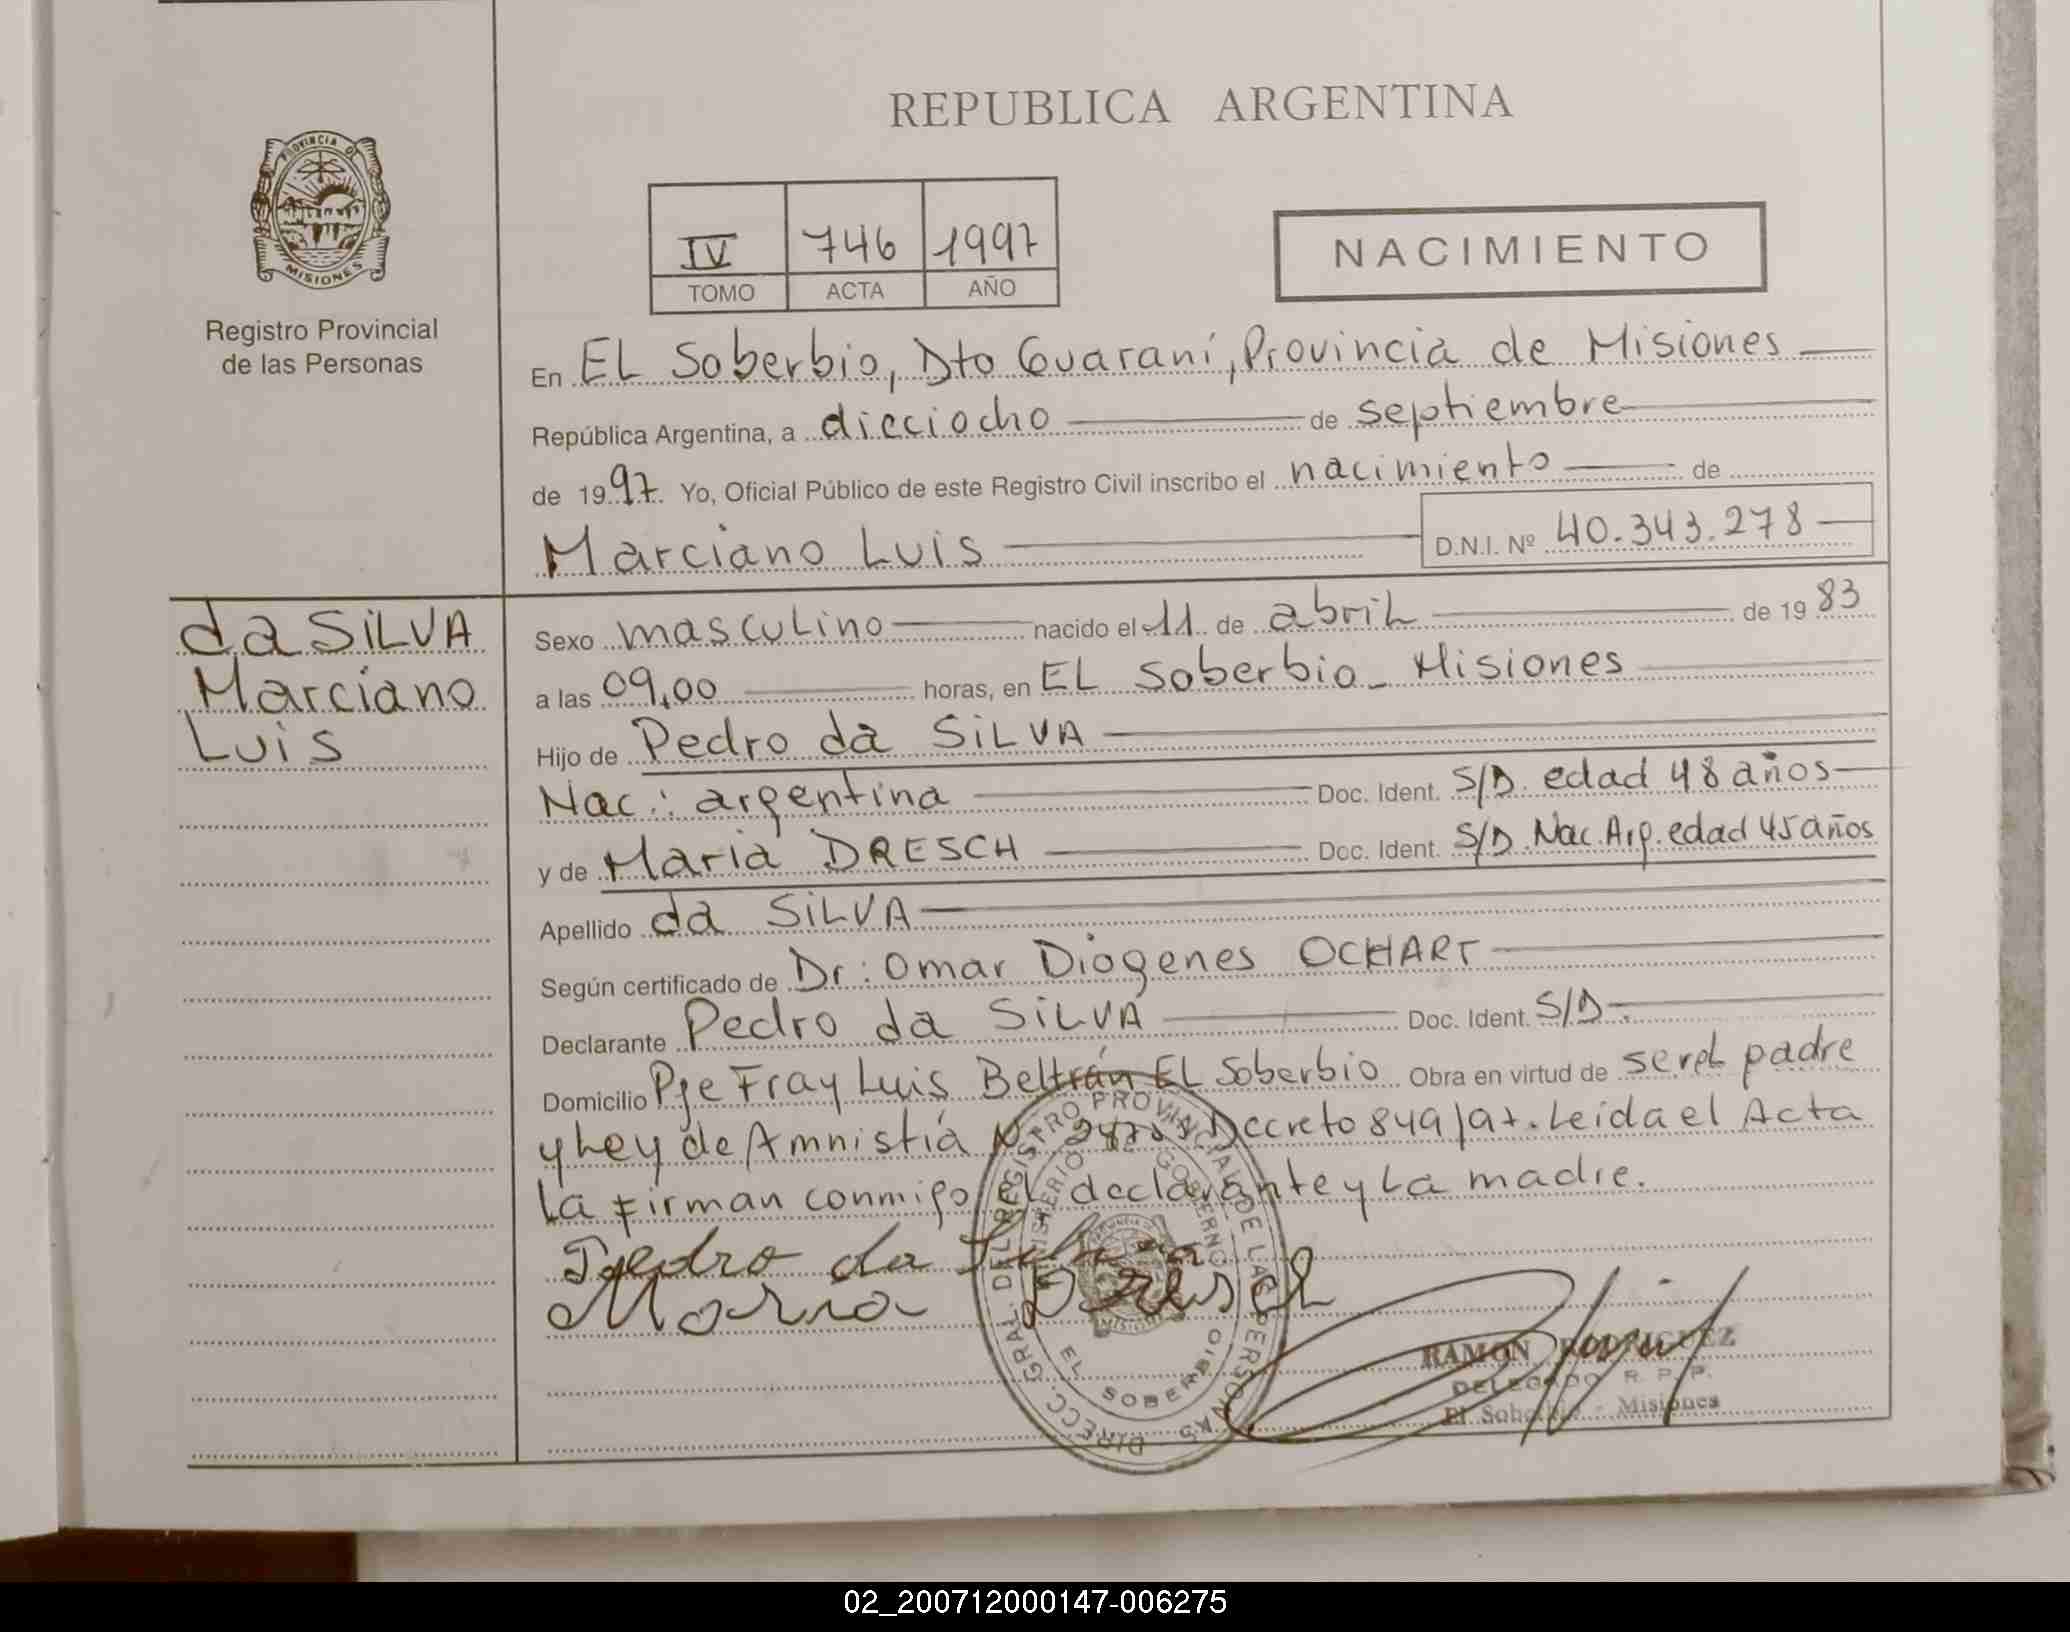 REPUBLICA ARGENTINA
PROVINCIA DE
MISIONES
Registro Provincial
de las Personas
IV 746 1997
TOMO ACTA AÑO
NACIMIENTO
En EL Soberbio, Dto Guaraní, Provincia de Misiones
República Argentina, a diecciocho de septiembre
de 1997. Yo, Oficial Público de este Registro Civil inscribo el nacimiento de
Marciano Luis D.N.I. Nº 40.343.278
da SILVA
Marciano
Luis
Sexo masculino nacido el 11 de abril de 1983
a las 09,00 horas, en EL Soberbio - Misiones
Hijo de Pedro da SILVA
Nac.: argentina Doc. Ident. S/D. edad 48 años
y de Maria DRESCH Doc. Ident. S/D. Nac. Arg. edad 45 años
Apellido da SILVA
Según certificado de Dr: Omar Diógenes OCHART
Declarante Pedro da SILVA Doc. Ident. S/D.
Domicilio Pje Fray Luis Beltrán EL Soberbio Obra en virtud de ser el padre
y Ley de Amnistía Nº Decreto 849/97. Leída el Acta
La firman conmigo el declarante y La madre.
Pedro da Silva
Maria Dresch
DIRECC. GRAL. DEL REGISTRO PROVINCIAL DE LAS PERSONAS
MINISTERIO DE GOBIERNO
EL SOBERBIO
RAMON RODRIGUEZ
DELEGADO R. P. P.
El Soberbio - Misiones
02_200712000147-006275